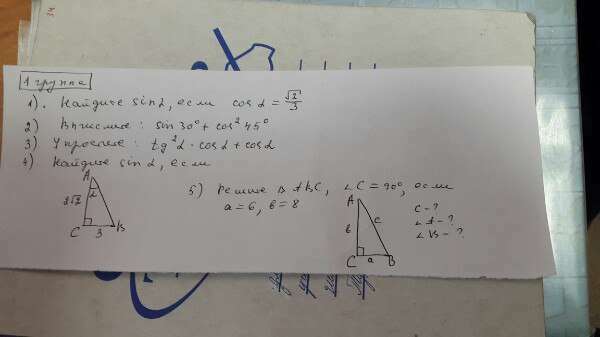 1 группа
1). Найдите sin α, если cos α = √2/3
2) Вычислите: sin 30° + cos² 45°
3) Упростите: tg² α · cos α + cos α
4) Найдите sin α, если
A
α
2√2
C 3 B
5) Решите Δ ABC, ∠C = 90°, если
a = 6, b = 8
A
b c
C a B
c - ?
∠A - ?
∠B - ?